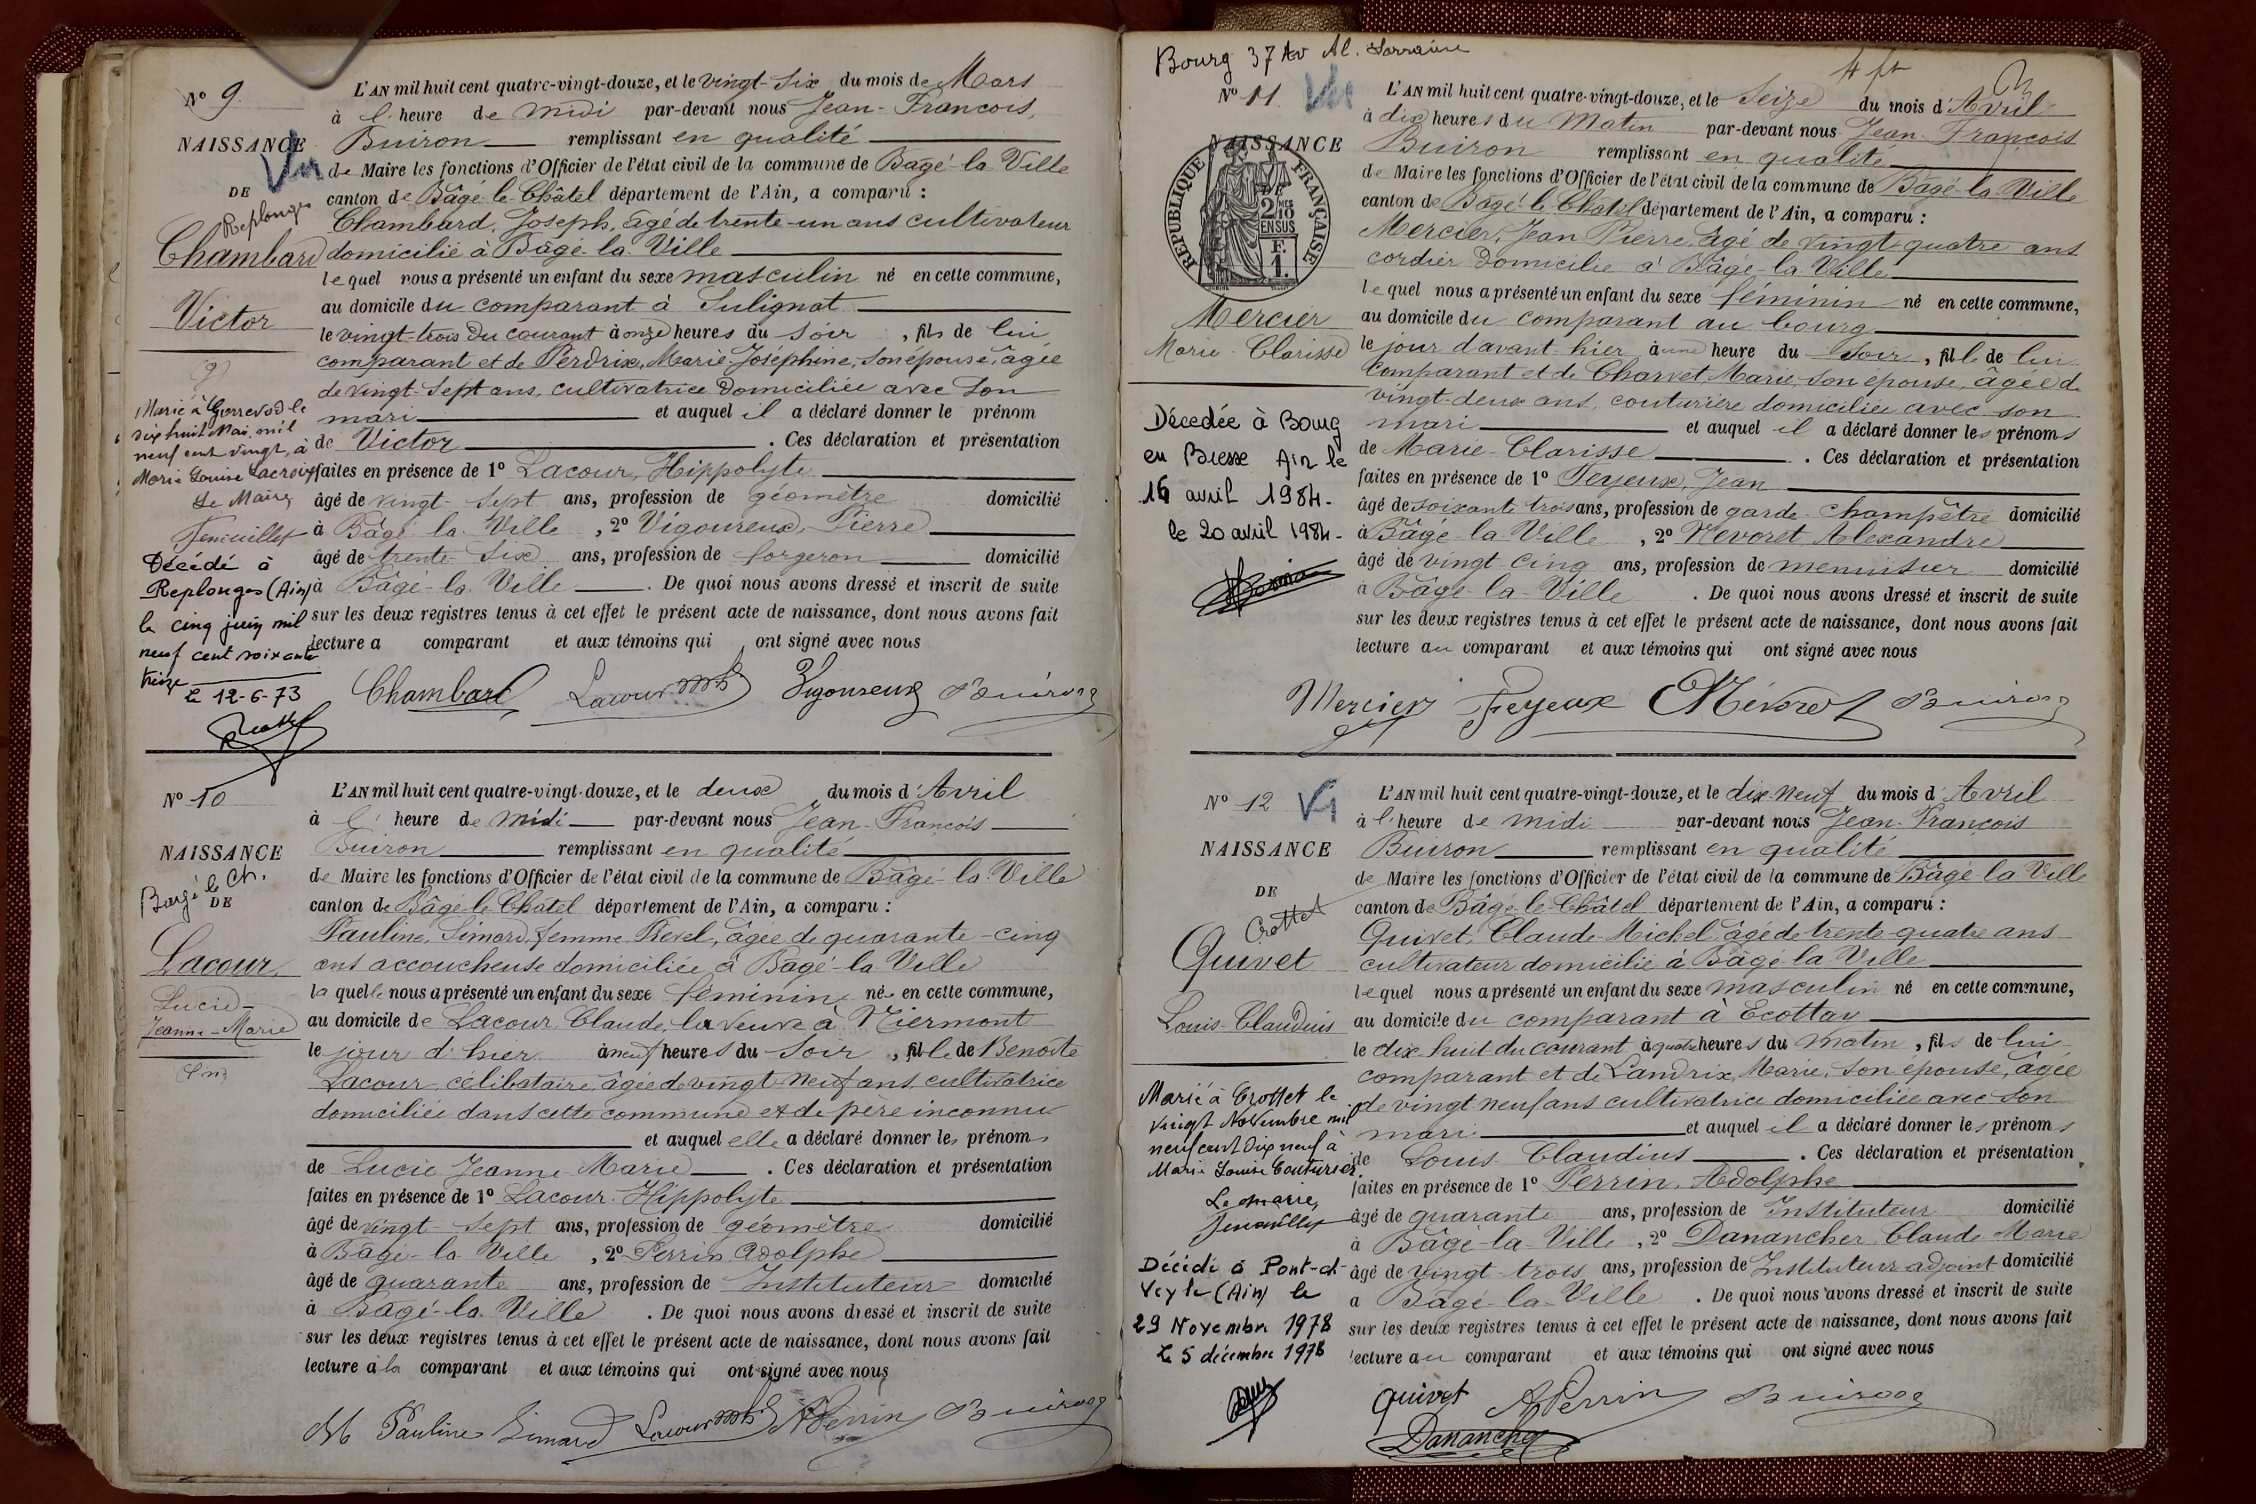 Nº 9.
NAISSANCE
DE
Replonges
Chambard
Victor
Marié à Gorrevod le
dix huit Mai mil
neuf cent vingt, à
Marie Louise Lacroix
Le Maire,
Décédé à
Replonges (Ain)
le cinq juin mil
neuf cent soixante
treize
Le 12-6-73
L'AN mil huit cent quatre-vingt-douze, et le vingt-six du mois de Mars
à l'heure de midi par-devant nous Jean-François,
Buiron remplissant en qualité
de Maire les fonctions d'Officier de l'état civil de la commune de Bâgé-la-Ville
canton de Bâgé-le-Châtel département de l'Ain, a comparu :
Chambard, Joseph, âgé de trente-un ans cultivateur
domicilié à Bâgé-la-Ville
lequel nous a présenté un enfant du sexe masculin né en cette commune,
au domicile du comparant à Sulignat
le vingt-trois du courant à onze heures du soir, fils de lui
comparant et de Perdrix, Marie Joséphine, son épouse, âgée
de vingt-sept ans, cultivatrice domiciliée avec son
mari et auquel il a déclaré donner le prénom
de Victor. Ces déclaration et présentation
faites en présence de 1º Lacour, Hippolyte
âgé de vingt-sept ans, profession de géomètre domicilié
à Bâgé-la-Ville, 2º Vigoureux, Pierre
âgé de trente-six ans, profession de forgeron domicilié
à Bâgé-la-Ville. De quoi nous avons dressé et inscrit de suite
sur les deux registres tenus à cet effet le présent acte de naissance, dont nous avons fait
lecture a comparant et aux témoins qui ont signé avec nous
Chambard Lacour Vigoureux Buiron
Nº 10
NAISSANCE
Bagé le Ch.
DE
Lacour
Lucie-
Jeanne-Marie
L'AN mil huit cent quatre-vingt-douze, et le deux du mois d'Avril
à l'heure de midi par-devant nous Jean-François
Buiron remplissant en qualité
de Maire les fonctions d'Officier de l'état civil de la commune de Bâgé-la-Ville
canton de Bâgé-le-Châtel département de l'Ain, a comparu :
Pauline, Simard, femme Revel, âgée de quarante-cinq
ans accoucheuse domiciliée à Bâgé-la-Ville
laquelle nous a présenté un enfant du sexe féminin née en cette commune,
au domicile de Lacour Claude, la veuve à
le jour d'hier à neuf heures du soir, fille de Benoîte
Lacour, célibataire, âgée de vingt-neuf ans, cultivatrice
domiciliée dans cette commune et de père inconnu
et auquel elle a déclaré donner les prénoms
de Lucie Jeanne Marie. Ces déclaration et présentation
faites en présence de 1º Lacour, Hippolyte
âgé de vingt-sept ans, profession de géomètre domicilié
à Bâgé-la-Ville, 2º Perrin Adolphe
âgé de quarante ans, profession de Instituteur domicilié
à Bâgé-la-Ville. De quoi nous avons dressé et inscrit de suite
sur les deux registres tenus à cet effet le présent acte de naissance, dont nous avons fait
lecture à la comparant et aux témoins qui ont signé avec nous
M Pauline Simard Lacour A Perrin Buiron
Bourg 37 Av Al. Lorraine
Nº 11
NAISSANCE
DE
RÉPUBLIQUE FRANÇAISE
2 10
EN SUS
F.
1.
Mercier
Marie-Clarisse
Décedée à Bourg
en Bresse Ain le
16 avril 1984.
le 20 avril 1984.
L'AN mil huit cent quatre-vingt-douze, et le Seize du mois d'Avril
à dix heures du Matin par-devant nous Jean-François
Buiron remplissant en qualité
de Maire les fonctions d'Officier de l'état civil de la commune de Bâgé-la-Ville
canton de Bâgé-le-Châtel département de l'Ain, a comparu :
Mercier, Jean Pierre, âgé de vingt-quatre ans
cordier domicilié à Bâgé-la-Ville
lequel nous a présenté un enfant du sexe féminin né en cette commune,
au domicile du comparant au bourg
le jour d'avant-hier à une heure du soir, fille de lui
comparant et de Charvet, Marie, son épouse, âgée de
vingt-deux ans, couturière domiciliée avec son
mari et auquel il a déclaré donner les prénoms
de Marie-Clarisse. Ces déclaration et présentation
faites en présence de 1º Feyeux, Jean
âgé de soixante trois ans, profession de garde-champêtre domicilié
à Bâgé-la-Ville, 2º Nevoret Alexandre
âgé de vingt-cinq ans, profession de menuisier domicilié
à Bâgé-la-Ville. De quoi nous avons dressé et inscrit de suite
sur les deux registres tenus à cet effet le présent acte de naissance, dont nous avons fait
lecture au comparant et aux témoins qui ont signé avec nous
Mercier Feyeux Buiron
Nº 12
NAISSANCE
DE
Crottet
Quivet
Louis-Claudius
Marié à Crottet le
vingt Novembre mil
neuf cent dix neuf à
Marie Louise Couturier
Le maire,
Décédé à Pont-de-
Veyle (Ain) le
29 Novembre 1978
Le 5 décembre 1978
L'AN mil huit cent quatre-vingt-douze, et le dix-neuf du mois d'Avril
à l'heure de midi par-devant nous Jean-François
Buiron remplissant en qualité
de Maire les fonctions d'Officier de l'état civil de la commune de Bâgé-la-Ville
canton de Bâgé-le-Châtel département de l'Ain, a comparu :
Quivet, Claude-Michel, âgé de trente-quatre ans
cultivateur domicilié à Bâgé-la-Ville
lequel nous a présenté un enfant du sexe masculin né en cette commune,
au domicile du comparant à Ecottay
le dix-huit du courant à quatre heures du matin, fils de lui
comparant et de Landrix, Marie, son épouse, âgée
de vingt-neuf ans cultivatrice domiciliée avec son
mari et auquel il a déclaré donner les prénoms
de Louis Claudius. Ces déclaration et présentation
faites en présence de 1º Perrin, Adolphe
âgé de quarante ans, profession de Instituteur domicilié
à Bâgé-la-Ville, 2º Danancher, Claude Marie
âgé de vingt-trois ans, profession de Instituteur-adjoint domicilié
a Bâgé-la-Ville. De quoi nous avons dressé et inscrit de suite
sur les deux registres tenus à cet effet le présent acte de naissance, dont nous avons fait
lecture au comparant et aux témoins qui ont signé avec nous
Quivet A Perrin Buiron
Danancher